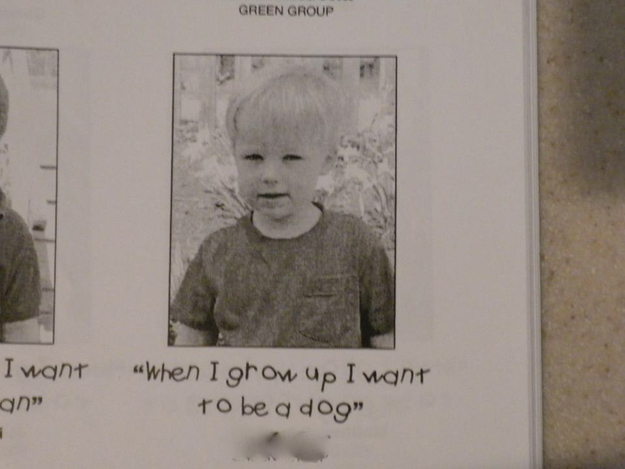 GREEN GROUP
I want
an”
“When I grow up I want
to be a dog”